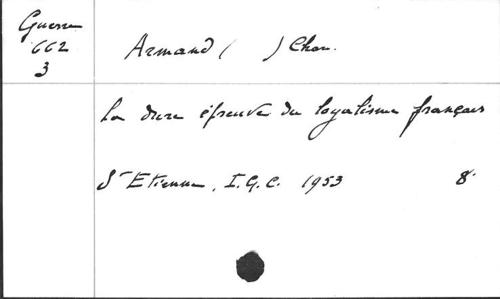 Guerre
662
3
Armand ( ) Chan.
La dure épreuve du loyalisme français
St Etienne, I.G.C. 1953 8°